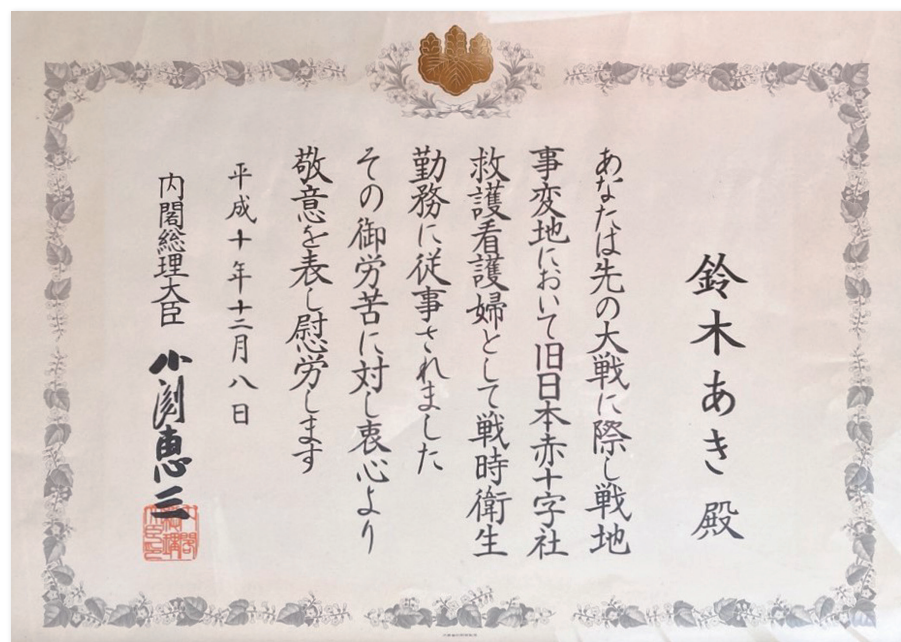 鈴木あき殿
あなたは先の大戦に際し戦地
事変地において旧日本赤十字社
救護看護婦として戦時衛生
勤務に従事されました
その御労苦に対し衷心より
敬意を表し慰労します
平成十年十二月八日
内閣総理大臣 小渕恵三